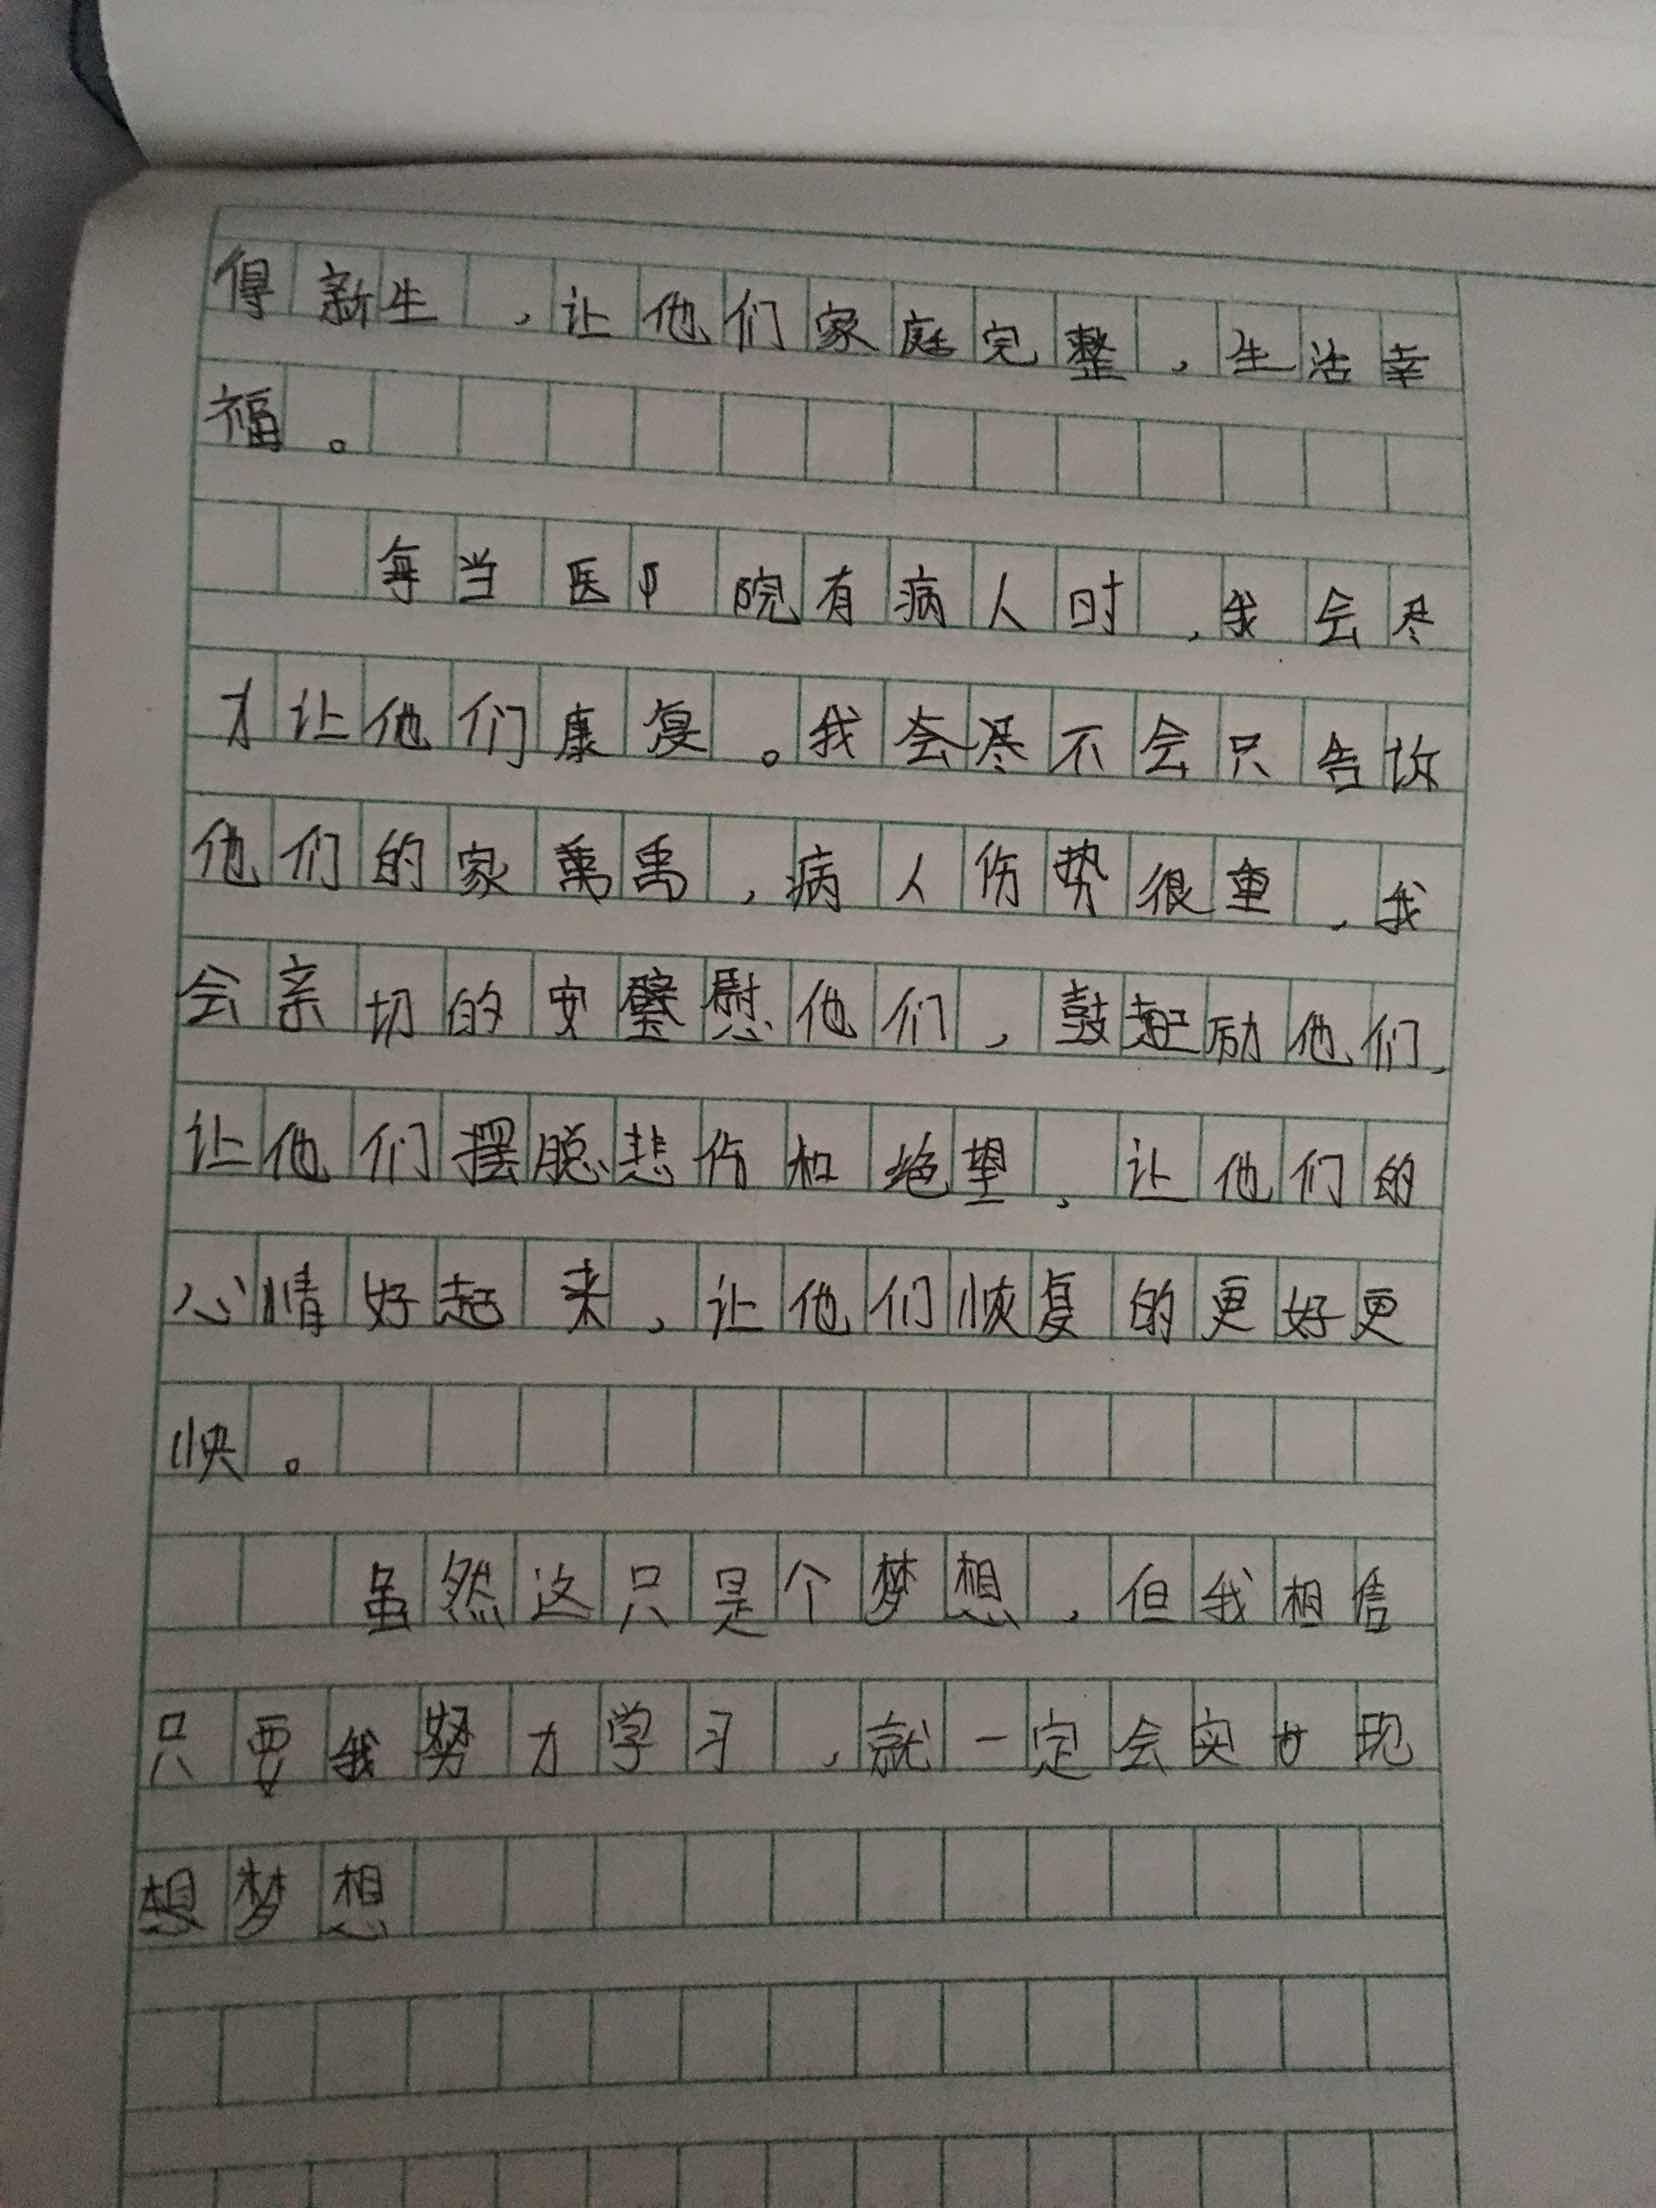 得新生，让他们家庭完整，生活幸
福。
每当医院有病人时，我会尽
力让他们康复。我会尽不会只告诉
他们的家，病人伤势很重，我
会亲切的安慰他们，鼓起励他们，
让他们摆脱悲伤和绝望，让他们的
心情好起来，让他们恢复的更好更
快。
虽然这只是个梦想，但我相信
只要我努力学习，就一定会实现
想梦想